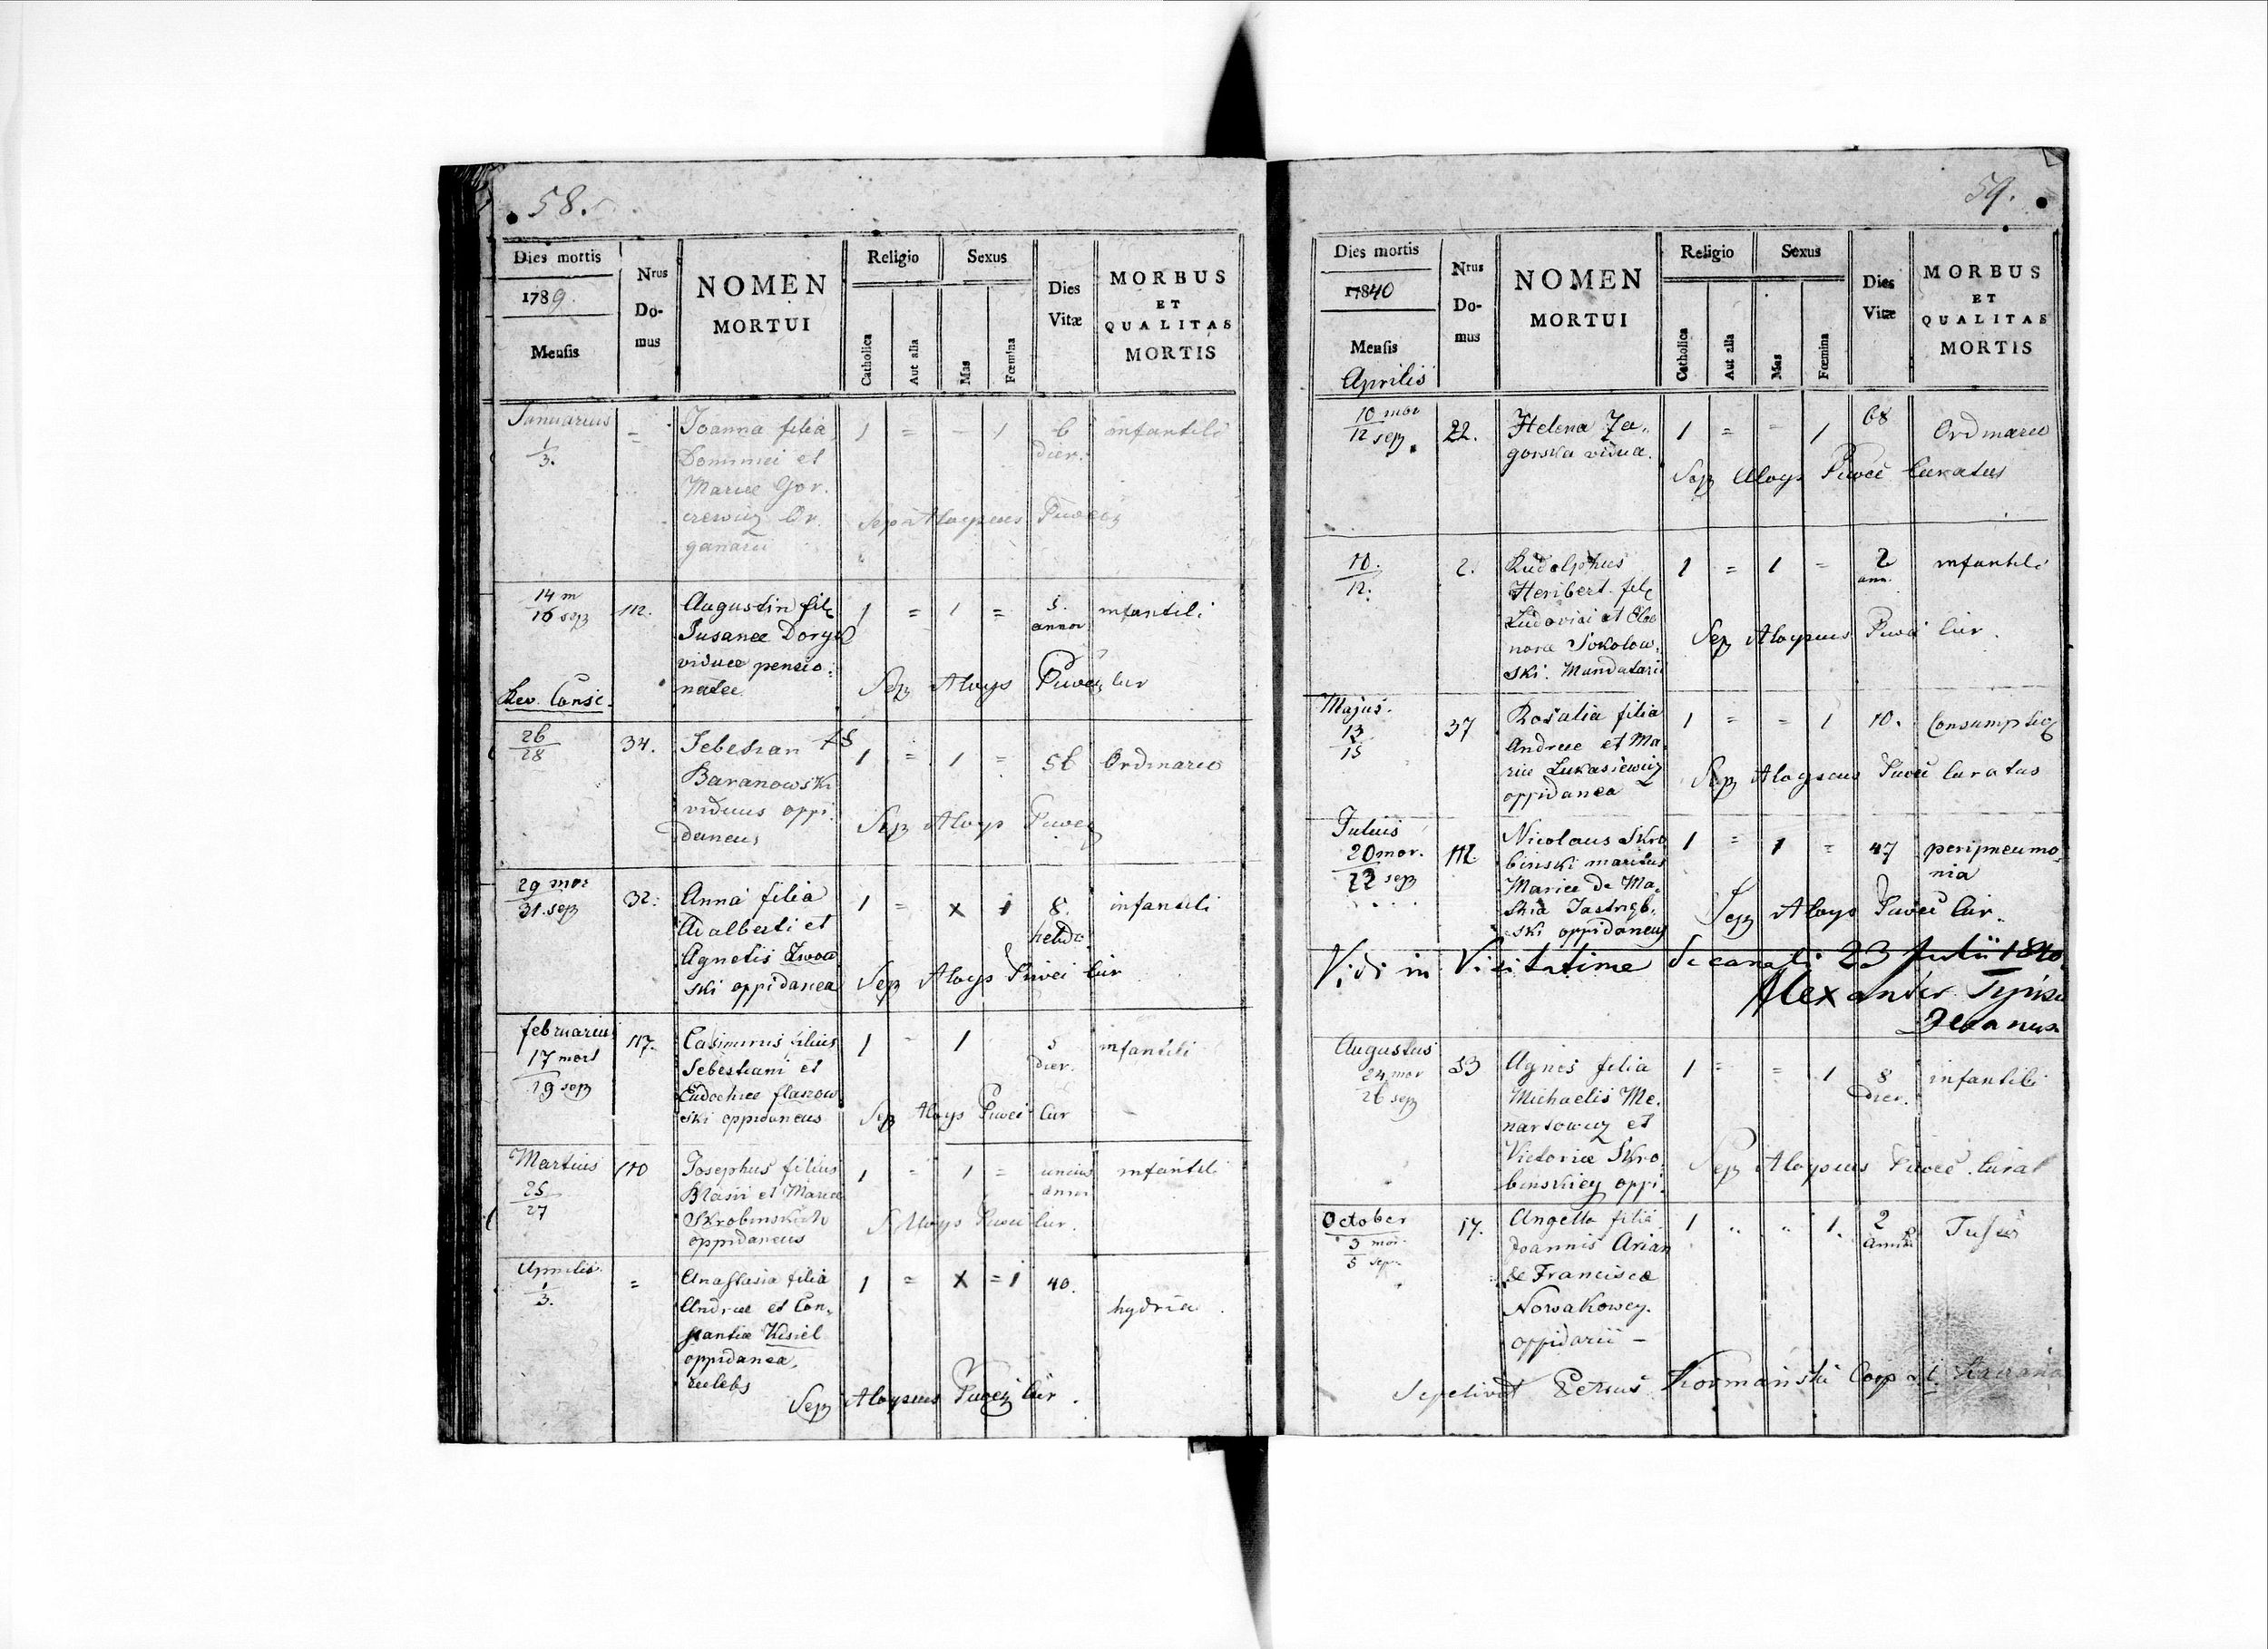 58.
Dies mortis
1789.
Mensis
Nrus
Do-
mus
NOMEN
MORTUI
Religio
Catholica
Aut alia
Sexus
Mas
Fœmina
Dies
Vitæ
MORBUS
ET
QUALITAS
MORTIS
Januarius
1
3.
=
Joanna filia
et
Mariae Gor.
ganarii
1 = - 1
6
dier.
infantili
Sep Aloysius
14 m
16 sep
112.
Augustin fil
Susanae
viduae pensio:
natae
1 = 1 =
5.
annor
infantili
Sep Aloys Puwei Cur
Rev. Consi.
26
28
34.
Sebestian
Baranowski
viduus oppi.
daneus
1 = 1 =
56
Ordinario
Sep Aloys
29 mor
31. sep
32.
Anna filia
Adalberti et
Agnetis
ski oppidanea
1 = x 1
8.
hebdo
infantili
Sep Aloys Puwei Cur
februarius
17 mort
19 sep
117.
Casimirus filius
Sebestiani et
Eudochiae
ski oppidaneus
1 - 1
5
dier.
infantili
Sep Aloys Puwei Cur
Martius
25
27
110
Josephus filius
Blasii et Mariae
Skrobinskich
oppidaneus
1 = 1 =
unius
anni
infantili
S Aloys Puwei Cur.
Aprilis
1
3.
=
Anastasia filia
Andreae et Con,
stantiae Kisiel
oppidanea,
caelebs
1 = x = 1
40.
hydria.
Sep Aloysius Cur.
59.
Dies mortis
17840
Mensis
Aprilis
Nrus
Do-
mus
NOMEN
MORTUI
Religio
Catholica
Aut alia
Sexus
Mas
Fœmina
Dies
Vitæ
MORBUS
ET
QUALITAS
MORTIS
10 mor
12 sep.
22.
Helena Za,
gorska vidua.
1 = = 1
68
Ordinario
Sep Aloys Puwei Curatus
10.
12.
2.
Rudolphus
Heribert. fil
Ludovici et Eleo
nora Sokolow,
ski. Mandatarii
1 = 1 =
2
ann.
infantili
Sep Aloysius Puwei Cur.
Majus.
13
15
37
Rosalia filia
Andreae et Ma
riae Lukasiewicz
oppidanea
1 = = 1
10.
Sep Aloysius Puwei Curatus
Julius
20 mor.
22 sep
112.
Nicolaus Skro
binski maritus
Mariae de Ma,
ski oppidaneus
1 = 1 =
47
peripneumo,
nia
Sep Aloys Puwei Cur.
Vidi in Visitatione Decanali 23 Julii 1840.
Alexander
Decanus
Augustus
24 mor
26 sep
53
Agnes filia
Michaelis Me.
nartowicz et
Victoriae Skro,
binskiey oppi.
1 = = 1
8
dier.
infantili
Sep Aloysius Puwei Curat
October
3 mor.
5 sep.
17.
Angella filia
Joannis Arian
& Francisca
Nowakowey.
oppidarii —
1 " " 1.
2
Tussis
Sepelivit Petrus Kormański